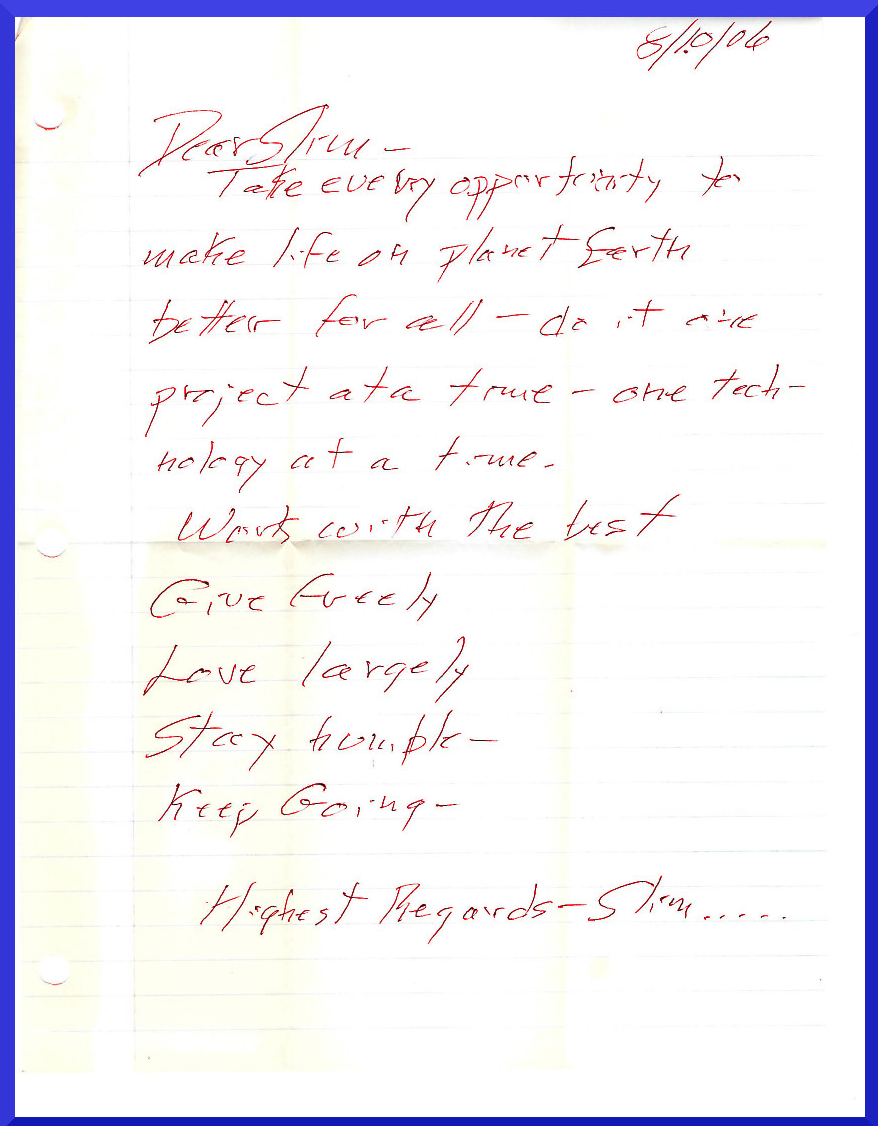 8/10/06
Dear Slim –
Take every opportunity to
make life on planet Earth
better for all – do it one
project at a time – one tech-
nology at a time.
Work with the best
Give Freely
Love largely
Stay humble –
Keep Going –
Highest Regards – Slim.....